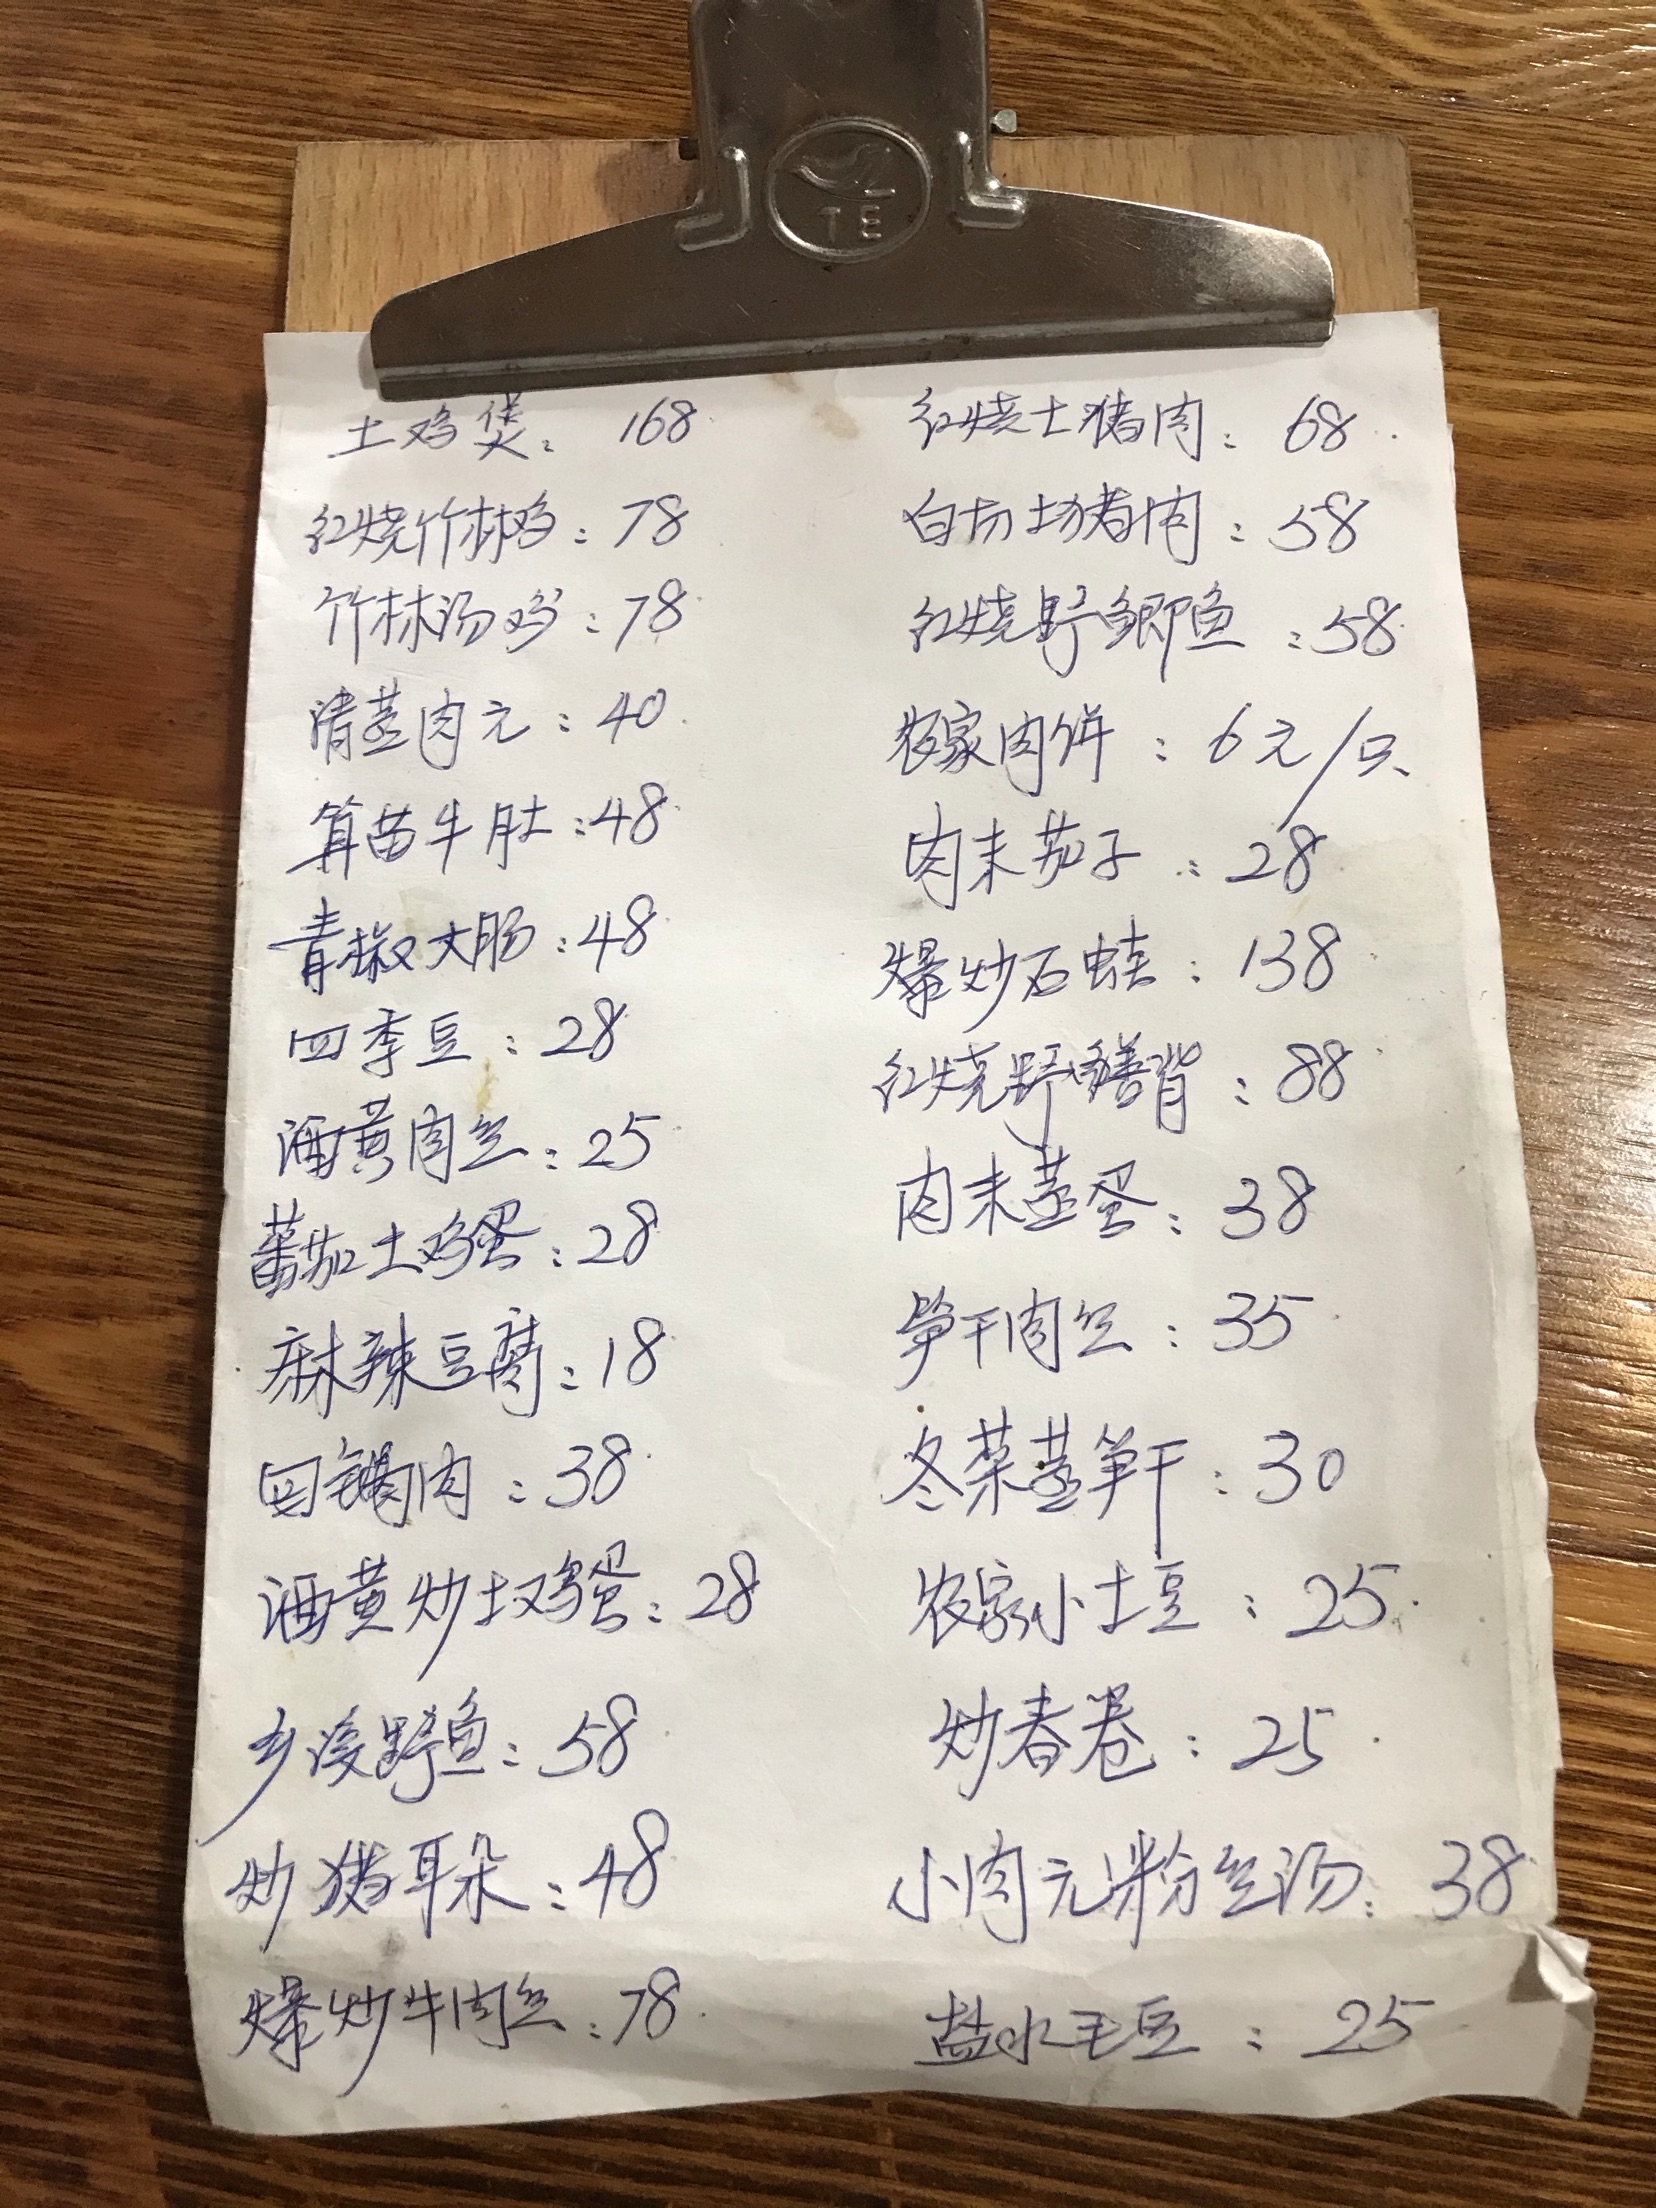 TE
土鸡煲: 168
红烧竹林鸡: 78
竹林汤鸡: 78
清蒸肉元: 40
笋苗牛肚: 48
青椒大肠: 48
四季豆: 28
酒黄肉丝: 25
蕃茄土鸡蛋: 28
麻辣豆腐: 18
回锅肉: 38
酒黄炒土鸡蛋: 28
乡溪野鱼: 58
炒猪耳朵: 48
爆炒牛肉丝: 78
红烧土猪肉: 68
白切土猪肉: 58
红烧野鲫鱼: 58
农家肉饼: 6元/只
肉末茄子: 28
爆炒石蛙: 138
红烧野鳝背: 88
肉末蒸蛋: 38
笋干肉丝: 35
冬菜蒸笋干: 30
农家小土豆: 25
炒春卷: 25
小肉元粉丝汤: 38
盐水毛豆: 25